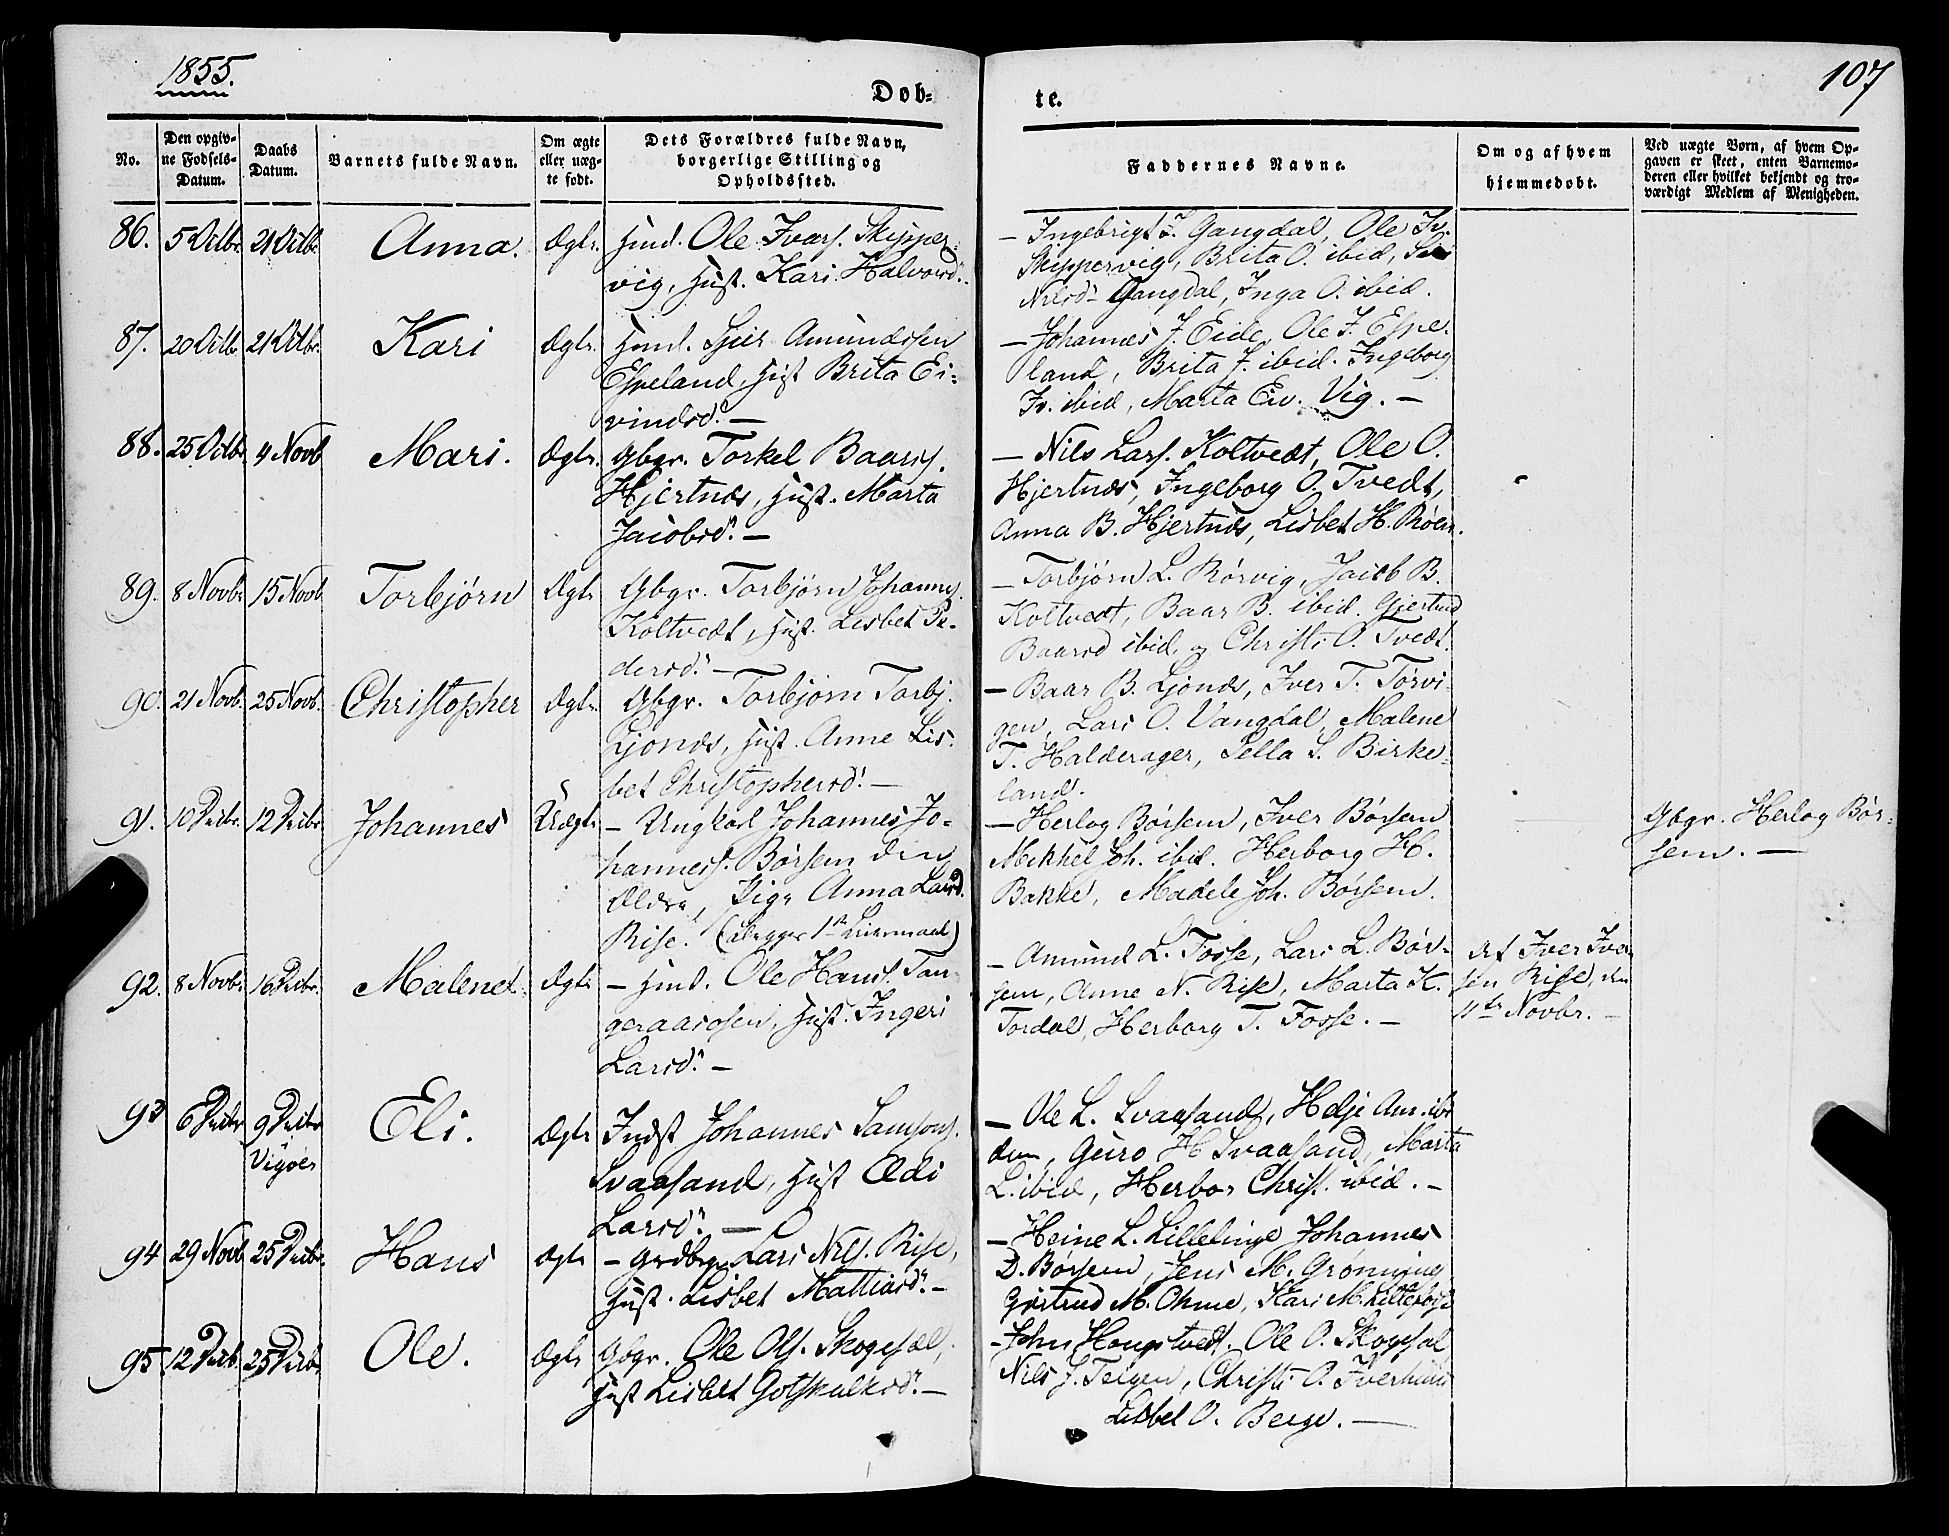 1855.
107
Dob-
te.
No.
Den opgiv-
ne Fodsels-
Datum.
Daabs
Datum.
Barnets fulde Navn.
Om ægte
eller uæg-
te født.
Dets Forældres fulde Navn,
borgerlige Stilling og
Opholdssted.
Faddernes Navne.
Om og af hvem
hjemmedobt.
Ved uægte Børn, af hvem Op-
gaven er skeet, enten Barnemo-
deren eller hvilket bekjendt og tro-
værdigt Medlem af Menigheden.
86. 5 Octbr. 21 Octbr. Anna. Ægte. Hmd. Ole Ivars. Skipper-
vig, Hust. Kari Halvord.
– Ingebrigt I. Gangdal, Ole Iv.
Skippervig, Brita O. ibid,
Nilsd. Gangdal, Inga O. ibid.
87. 20 Octbr. 21 Octbr. Kari Ægte. Hmd. Sjur Amundssen
Espeland, Hust Brita Ei-
vindsd. –
– Johannes J. Eide, Ole J. Espe-
land, Brita J. ibid. Ingeborg
Iv. ibid, Marta Eiv. Vig. –
88. 25 Octbr. 4 Novb. Mari. Ægte. Gbgr. Torkel Baars.
Hjertnæs, Hust. Marta
Jacobsd. –
– Nils Lars. Koltvedt, Ole O.
Hjertnæs, Ingeborg O. Tvedt,
Anna B. Hjertnæs, Lisbet H.
89. 8 Novbr. 15 Novb. Torbjørn Ægte Gbgr. Torbjørn Johannes.
Koltvedt, Hust. Lisbet Pe-
dersd. –
– Torbjørn L. Rørvig, Jacob B.
Koltvedt, Baar B. ibid. Gjertrud
Baarsd ibid, og Christi O. Tvedt.
90. 21 Novb. 25 Novb. Christopher Ægte. Gbgr. Torbjørn Torbj.
Ljonæs, Hust. Anne Lis-
bet Christophersd. –
– Baar B. Ljonæs, Iver T. Torvi-
gen, Lars O. Vangdal, Malene
T. Halderager, Sella S. Birke-
land.
91. 10 Decbr. 12 Decbr. Johannes Uægte – Ungkarl Johannes Jo-
hanness. Børsem den
Ældre, Pige Anna Larsd.
Rise. (Begges 1ste Leiermaal)
– Herlog Børsem, Iver Børsem
Mikkel Joh. ibid. Herborg H.
Bakke, Madele Joh. Børsem.
Gbgr. Herlog Bør-
sem. –
92. 8 Novbr. 16 Decbr. Malene Ægte – Hmd. Ole Hans. Tan-
geraasosen, Hust. Ingeri
Larsd. –
– Amund L. Fosse, Lars L. Bør-
sem, Anne N. Rise, Marta K.
Tordal, Herborg T. Fosse. –
Af Iver Iver-
sen Rise, den
11te Novbr. –
93 6 Decbr 9 Decbr
Vigøer Eli. Ægte Indst Johannes Samsons.
Svaasand, Hust Ædi
Larsd. –
– Ole L. Svaasand, Helje Am. ibi-
dem, Guro H Svaasand, Marta
L. ibid, Herbor Christ. ibid. –
94 29 Novb 25 Decbr. Hans Ægte – Grdbgr Lars Nils. Rise,
Hust. Lisbet Mathiasd. –
– Heine L. Lillelinge Johannes
D. Børsem, Jens M. Grønning
Gjertrud M. Ohme, Kari M.
95 12 Decb. 25 Decbr Ole. Ægte Gbgr. Ole Ols. Skogesæl,
Hust Lisbet Gotskalksd. –
– John Hougstvedt, Ole O. Skogesal
Nils J. Teigen, Christi O. Iverhuus
Lisbet O. Berge. –